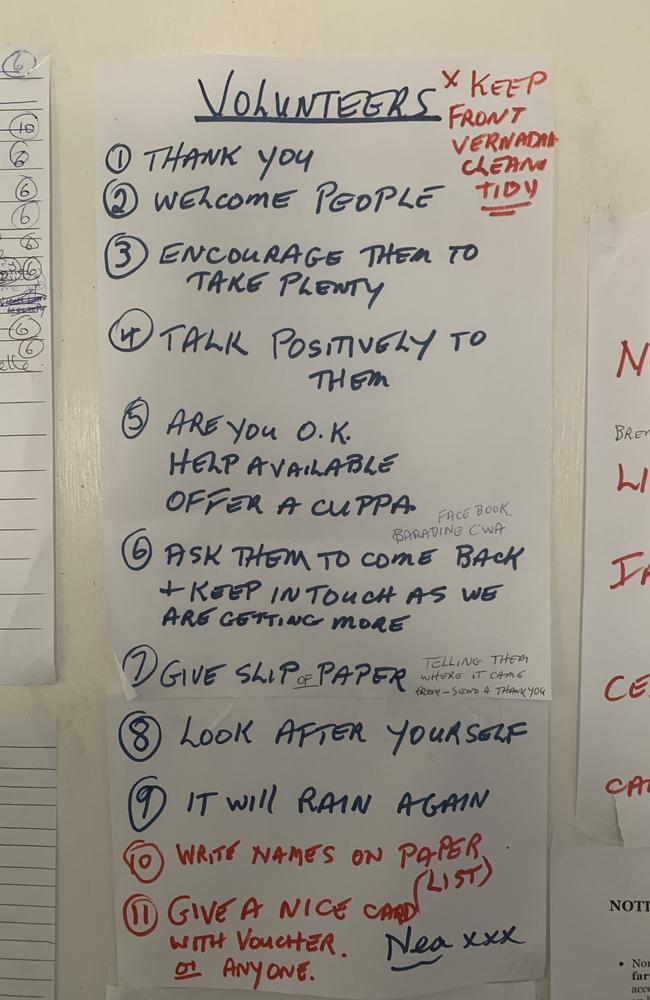 VOLUNTEERS
x KEEP
FRONT
VERNADAH
CLEAN
TIDY
① THANK YOU
② WELCOME PEOPLE
③ ENCOURAGE THEM TO
TAKE PLENTY
④ TALK POSITIVELY TO
THEM
⑤ ARE YOU O.K.
HELP AVAILABLE
OFFER A CUPPA
FACEBOOK
BARADINE CWA
⑥ ASK THEM TO COME BACK
+ KEEP IN TOUCH AS WE
ARE GETTING MORE
⑦ GIVE SLIP OF PAPER
TELLING THEM
WHERE IT CAME
FROM - SEND A THANK YOU
⑧ LOOK AFTER YOURSELF
⑨ IT WILL RAIN AGAIN
⑩ WRITE NAMES ON PAPER
(LIST)
⑪ GIVE A NICE CARD
WITH VOUCHER.
OR ANYONE.
Nea xxx
6
10
6
6
6
8
6
6
6
N
BRE
LI
CE
CA
NOTI
• No
far
acc